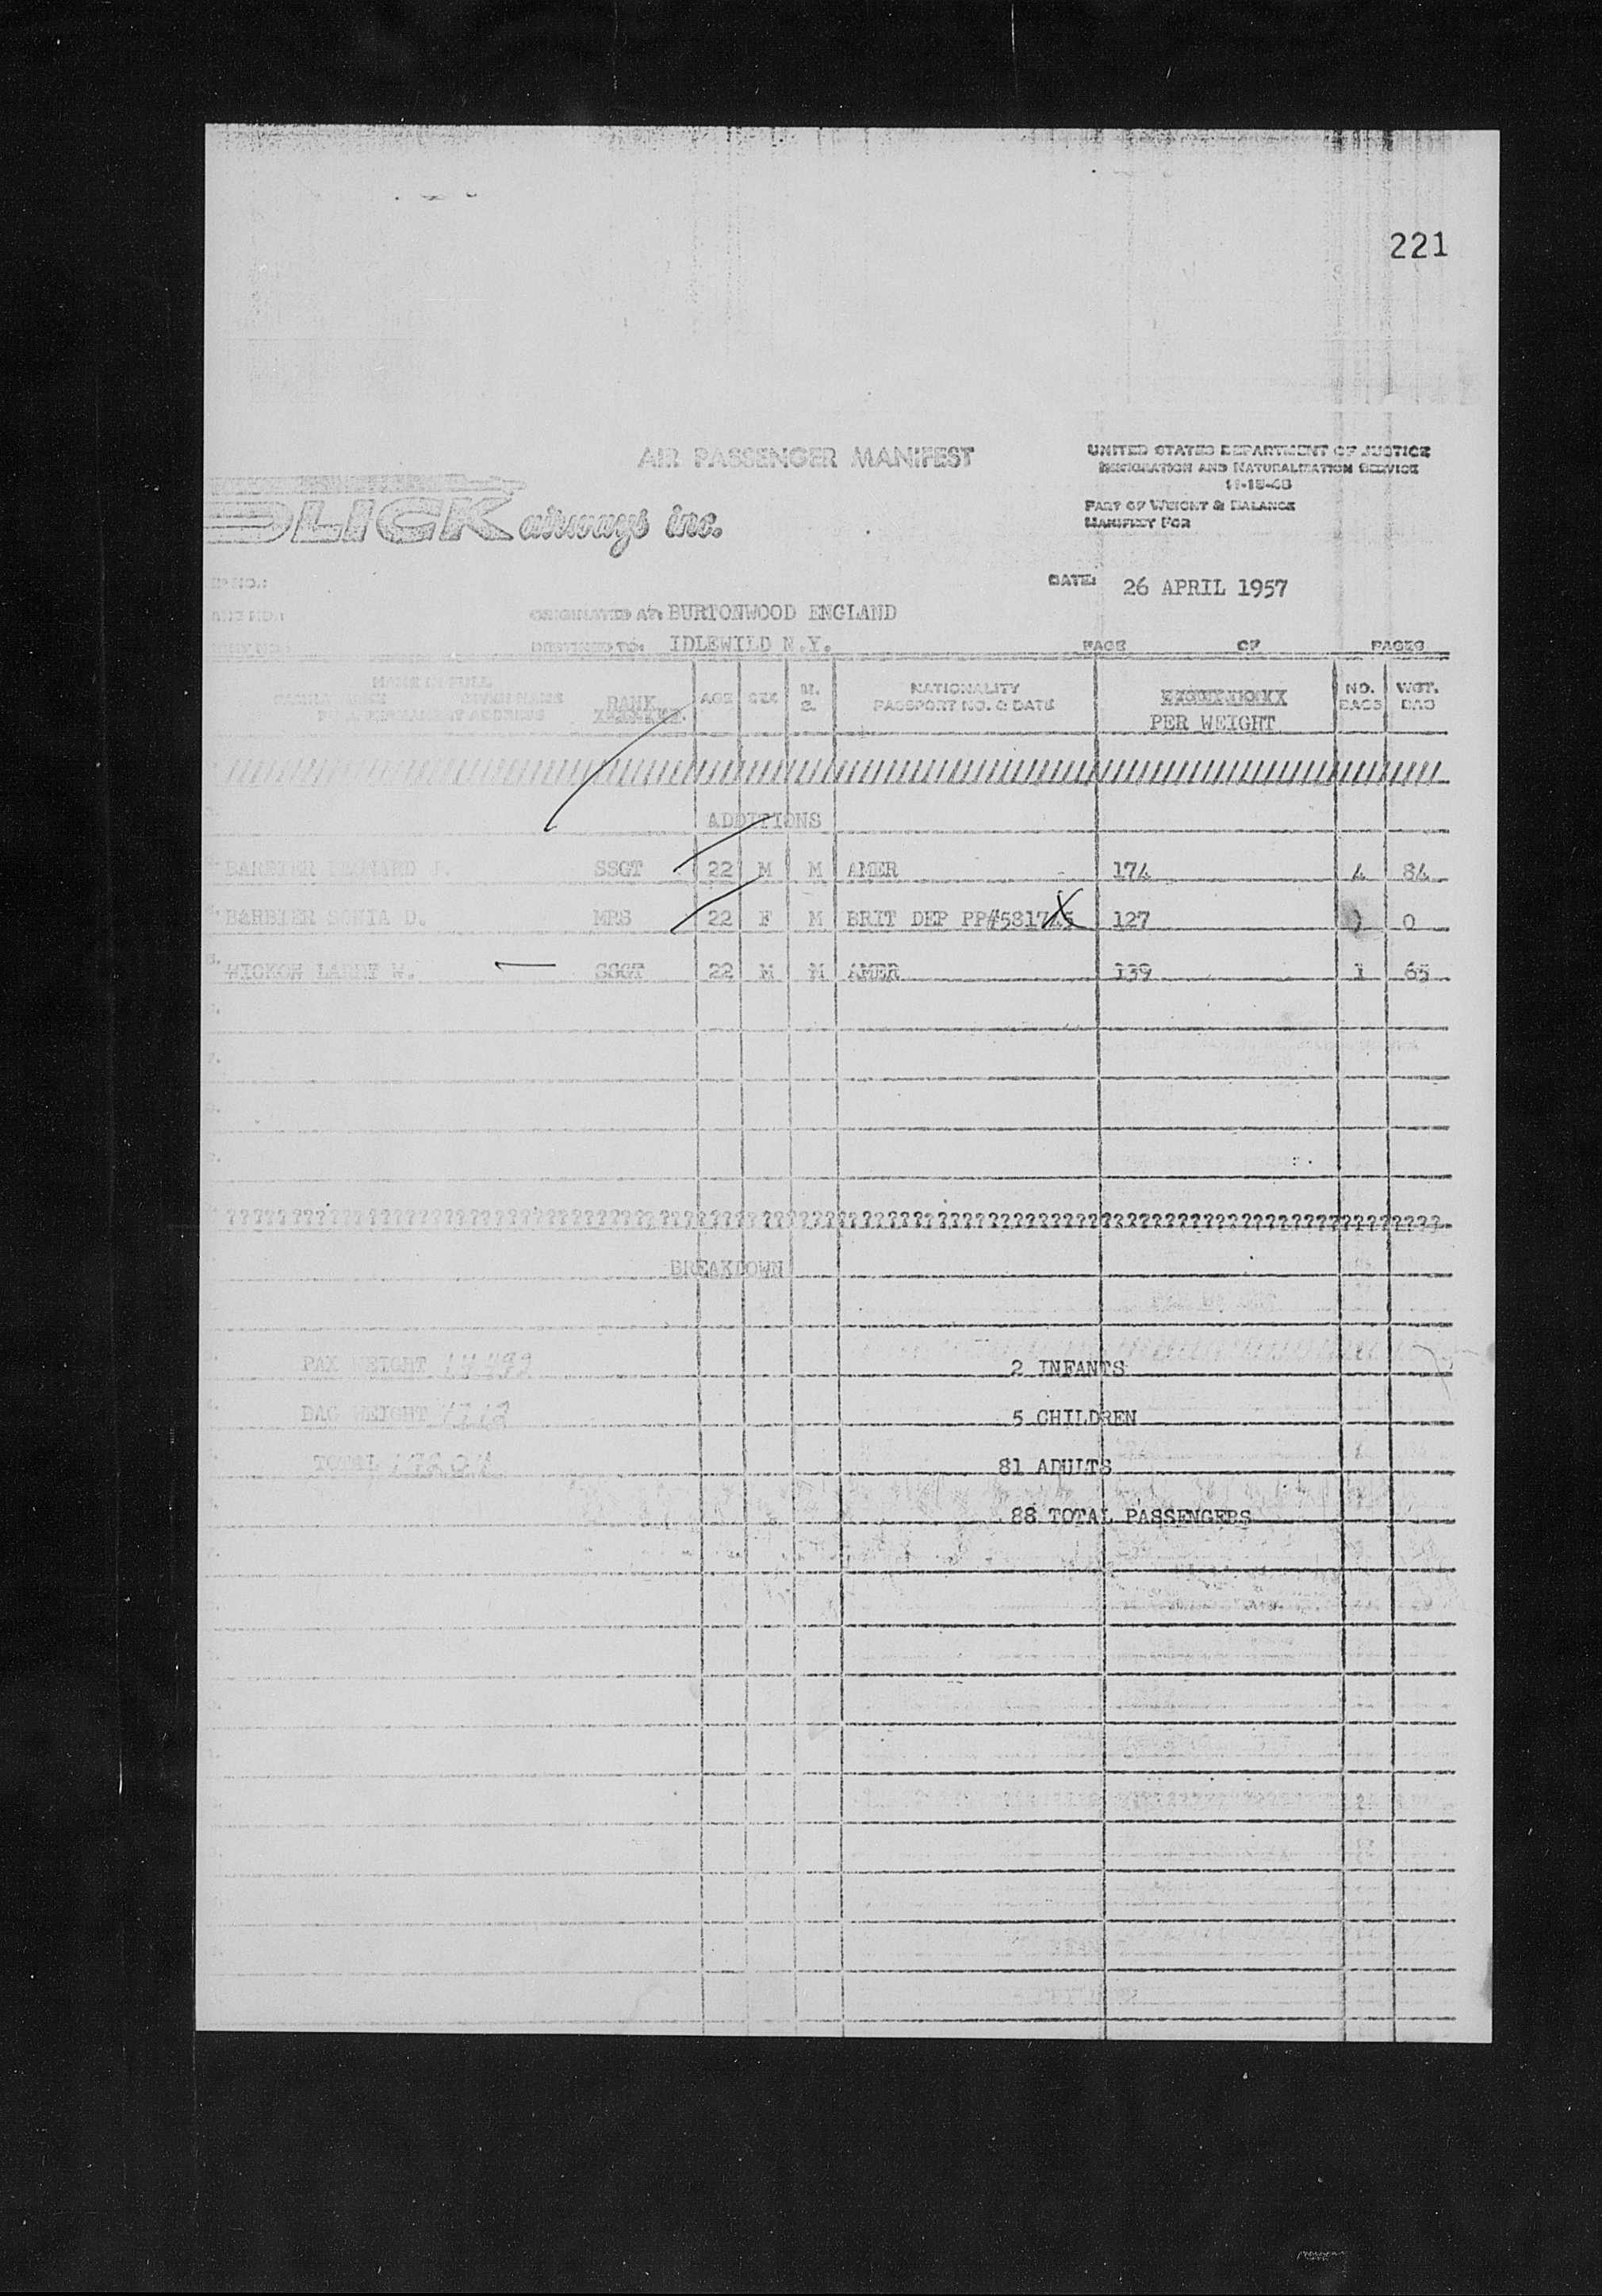 221
AIR PASSENGER MANIFEST
UNITED STATES DEPARTMENT OF JUSTICE
IMMIGRATION AND NATURALIZATION SERVICE
11-15-48
PART OF WEIGHT & BALANCE
MANIFEST FOR
SLICK airways inc.
DATE: 26 APRIL 1957
ORIGINATED AT: BURTONWOOD ENGLAND
DESTINED TO: IDLEWILD N.Y. PAGE OF PAGES
NAME IN FULL
FAMILY NAME GIVEN NAME
PERMANENT ADDRESS
RANK AGE SEX M. S. NATIONALITY PASSPORT NO. & DATE PER WEIGHT NO. BAGS WGT. BAG
////////////////////////////////////////////////////////////////////////////////
ADDITIONS
BARBIER LEONARD J. SSGT 22 M M AMER 174 4 84
BARBIER SONIA D. MRS 22 F M BRIT DEP 127 0
LARRY W. SSGT 22 M M AMER 139 1 65
????????????????????????????????????????????????????????????????????????????????
BREAKDOWN
PAX WEIGHT 2 INFANTS
BAG WEIGHT 5 CHILDREN
TOTAL 81 ADULTS
88 TOTAL PASSENGERS